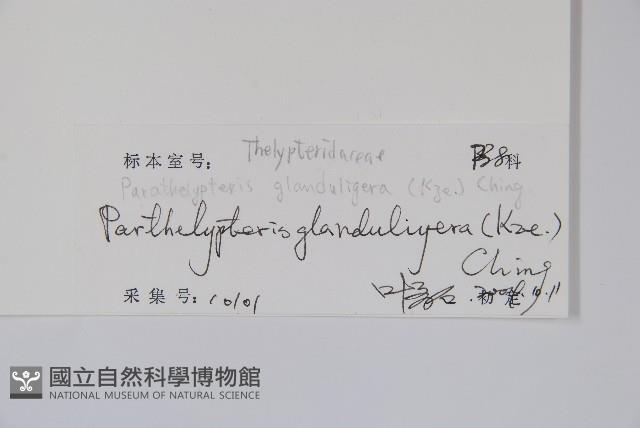 标本室号: Thelypteridaceae 科
Parathelypteris glanduligera (Kze.) Ching
Parthelypteris glanduligera (Kze.)
Ching
采集号: 10101
國立自然科學博物館
NATIONAL MUSEUM OF NATURAL SCIENCE